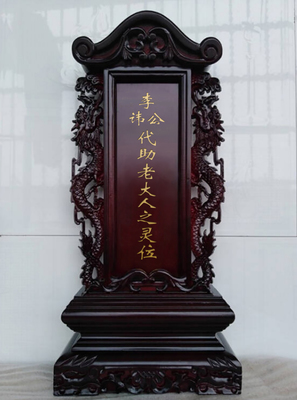 李公讳代助老大人之灵位